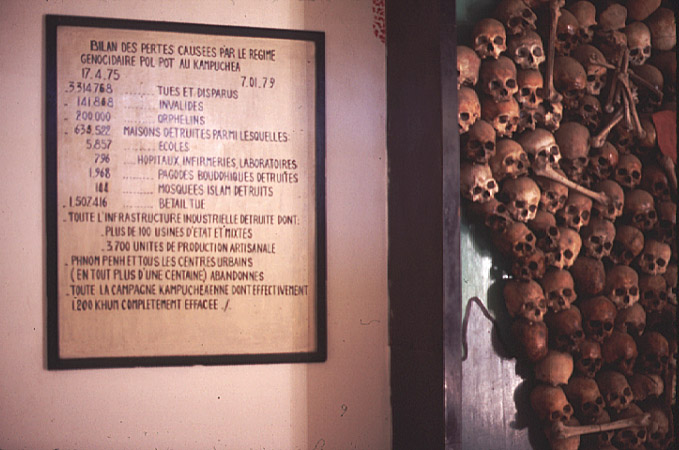 BILAN DES PERTES CAUSEES PAR LE REGIME
GENOCIDAIRE POL POT AU KAMPUCHEA
17.4.75 7.01.79
.3.314.768 ......... TUES ET DISPARUS
. 141.848 ......... INVALIDES
. 200.000 ......... ORPHELINS
. 634.522 MAISONS DETRUITES PARMI LESQUELLES:
5.857 ......... ECOLES
796 ......... HOPITAUX, INFIRMERIES, LABORATOIRES
1.968 ......... PAGODES BOUDDHIQUES DETRUITES
......... MOSQUEES ISLAM DETRUITS
. 1.507.416 ......... BETAIL TUE
. TOUTE L'INFRASTRUCTURE INDUSTRIELLE DETRUITE DONT:
. PLUS DE 100 USINES D'ETAT ET MIXTES
. 3.700 UNITES DE PRODUCTION ARTISANALE
. PHNOM PENH ET TOUS LES CENTRES URBAINS
(EN TOUT PLUS D'UNE CENTAINE) ABANDONNES
. TOUTE LA CAMPAGNE KAMPUCHEAENNE DONT EFFECTIVEMENT
1.200 KHUM COMPLETEMENT EFFACEE ./.